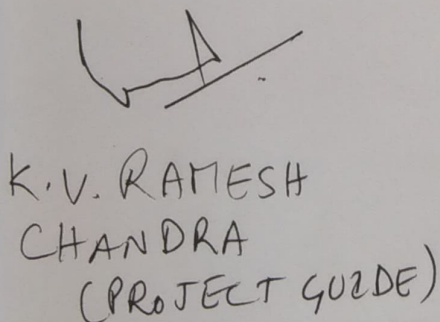 K.V. RAMESH
CHANDRA
(PROJECT GUIDE)